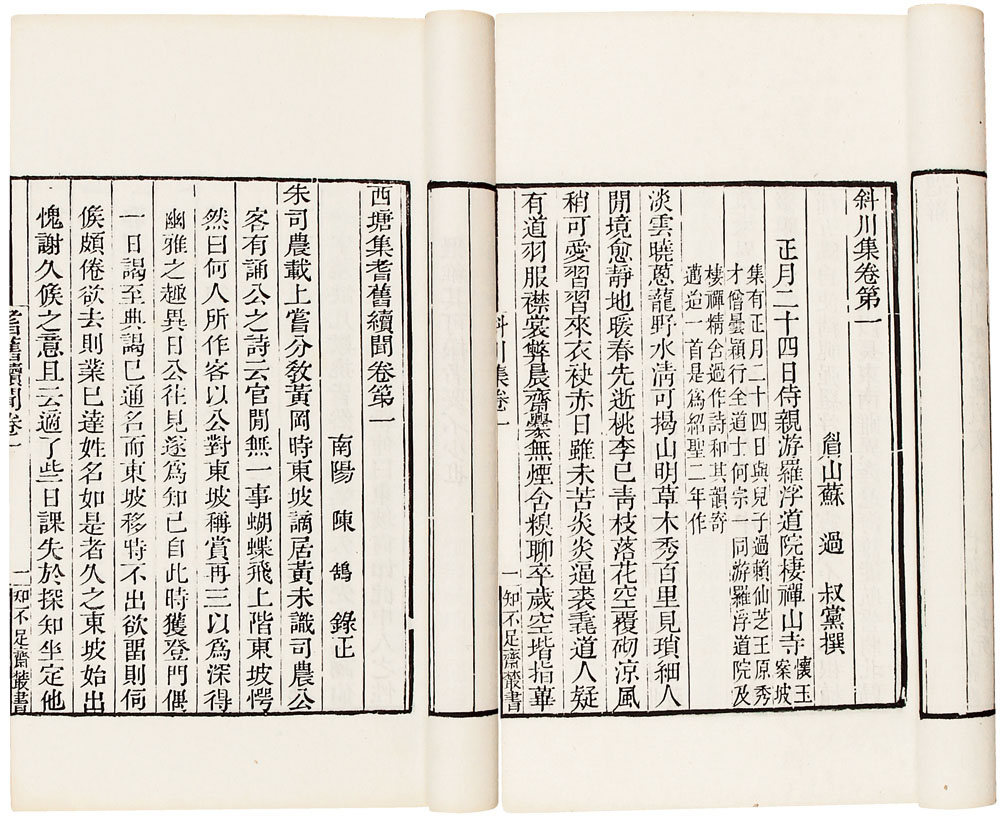 斜川集卷第一
眉山蘇 過 叔黨撰
正月二十四日侍親游羅浮道院棲禪山寺懷玉案坡
集有正月二十四日與兒子過賴仙芝王原秀
才僧曇穎行全道士何宗一同游羅浮道院及
棲禪精舍過作詩和其韻寄
邁迨一首是爲紹聖二年作
淡雲曉蔥蘢野水清可揭山明草木秀百里見瑣細人
閒境愈靜地暖春先逝桃李已靑枝落花空覆砌涼風
稍可愛習習來衣袂赤日雖未苦炎炎逼裘毳道人疑
有道羽服襟裳弊晨齋爨無煙含糗聊卒歲空堦指華
斜川集卷一
一
知不足齋叢書
西塘集耆舊續聞卷第一
南陽 陳 鵠 錄正
朱司農載上嘗分敎黃岡時東坡謫居黃未識司農公
客有誦公之詩云官閒無一事蝴蝶飛上階東坡愕
然曰何人所作客以公對東坡稱賞再三以爲深得
幽雅之趣異日公往見遂爲知己自此時獲登門偶
一日謁至典謁已通名而東坡移時不出欲留則伺
候頗倦欲去則業已達姓名如是者久之東坡始出
愧謝久候之意且云適了些日課失於探知坐定他
耆舊續聞卷一
一
知不足齋叢書